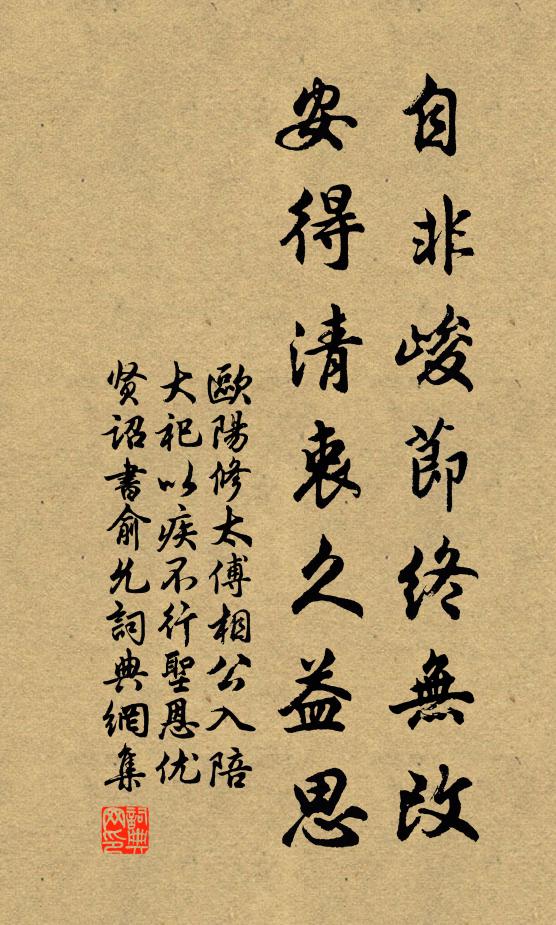 自非峻節終無改
安得清衷久益思
歐陽修太傅相公入陪
大祀以疾不行聖恩优
贤诏書俞允詞典網集
詞典网印